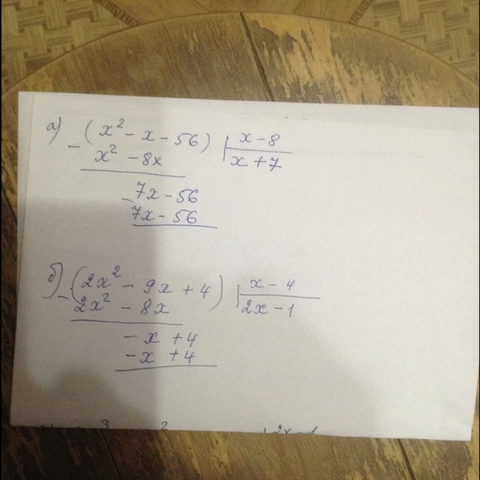 а) (x² - x - 56) | x - 8
- x² - 8x | x + 7
7x - 56
- 7x - 56
б) (2x² - 9x + 4) | x - 4
- 2x² - 8x | 2x - 1
- x + 4
- x + 4